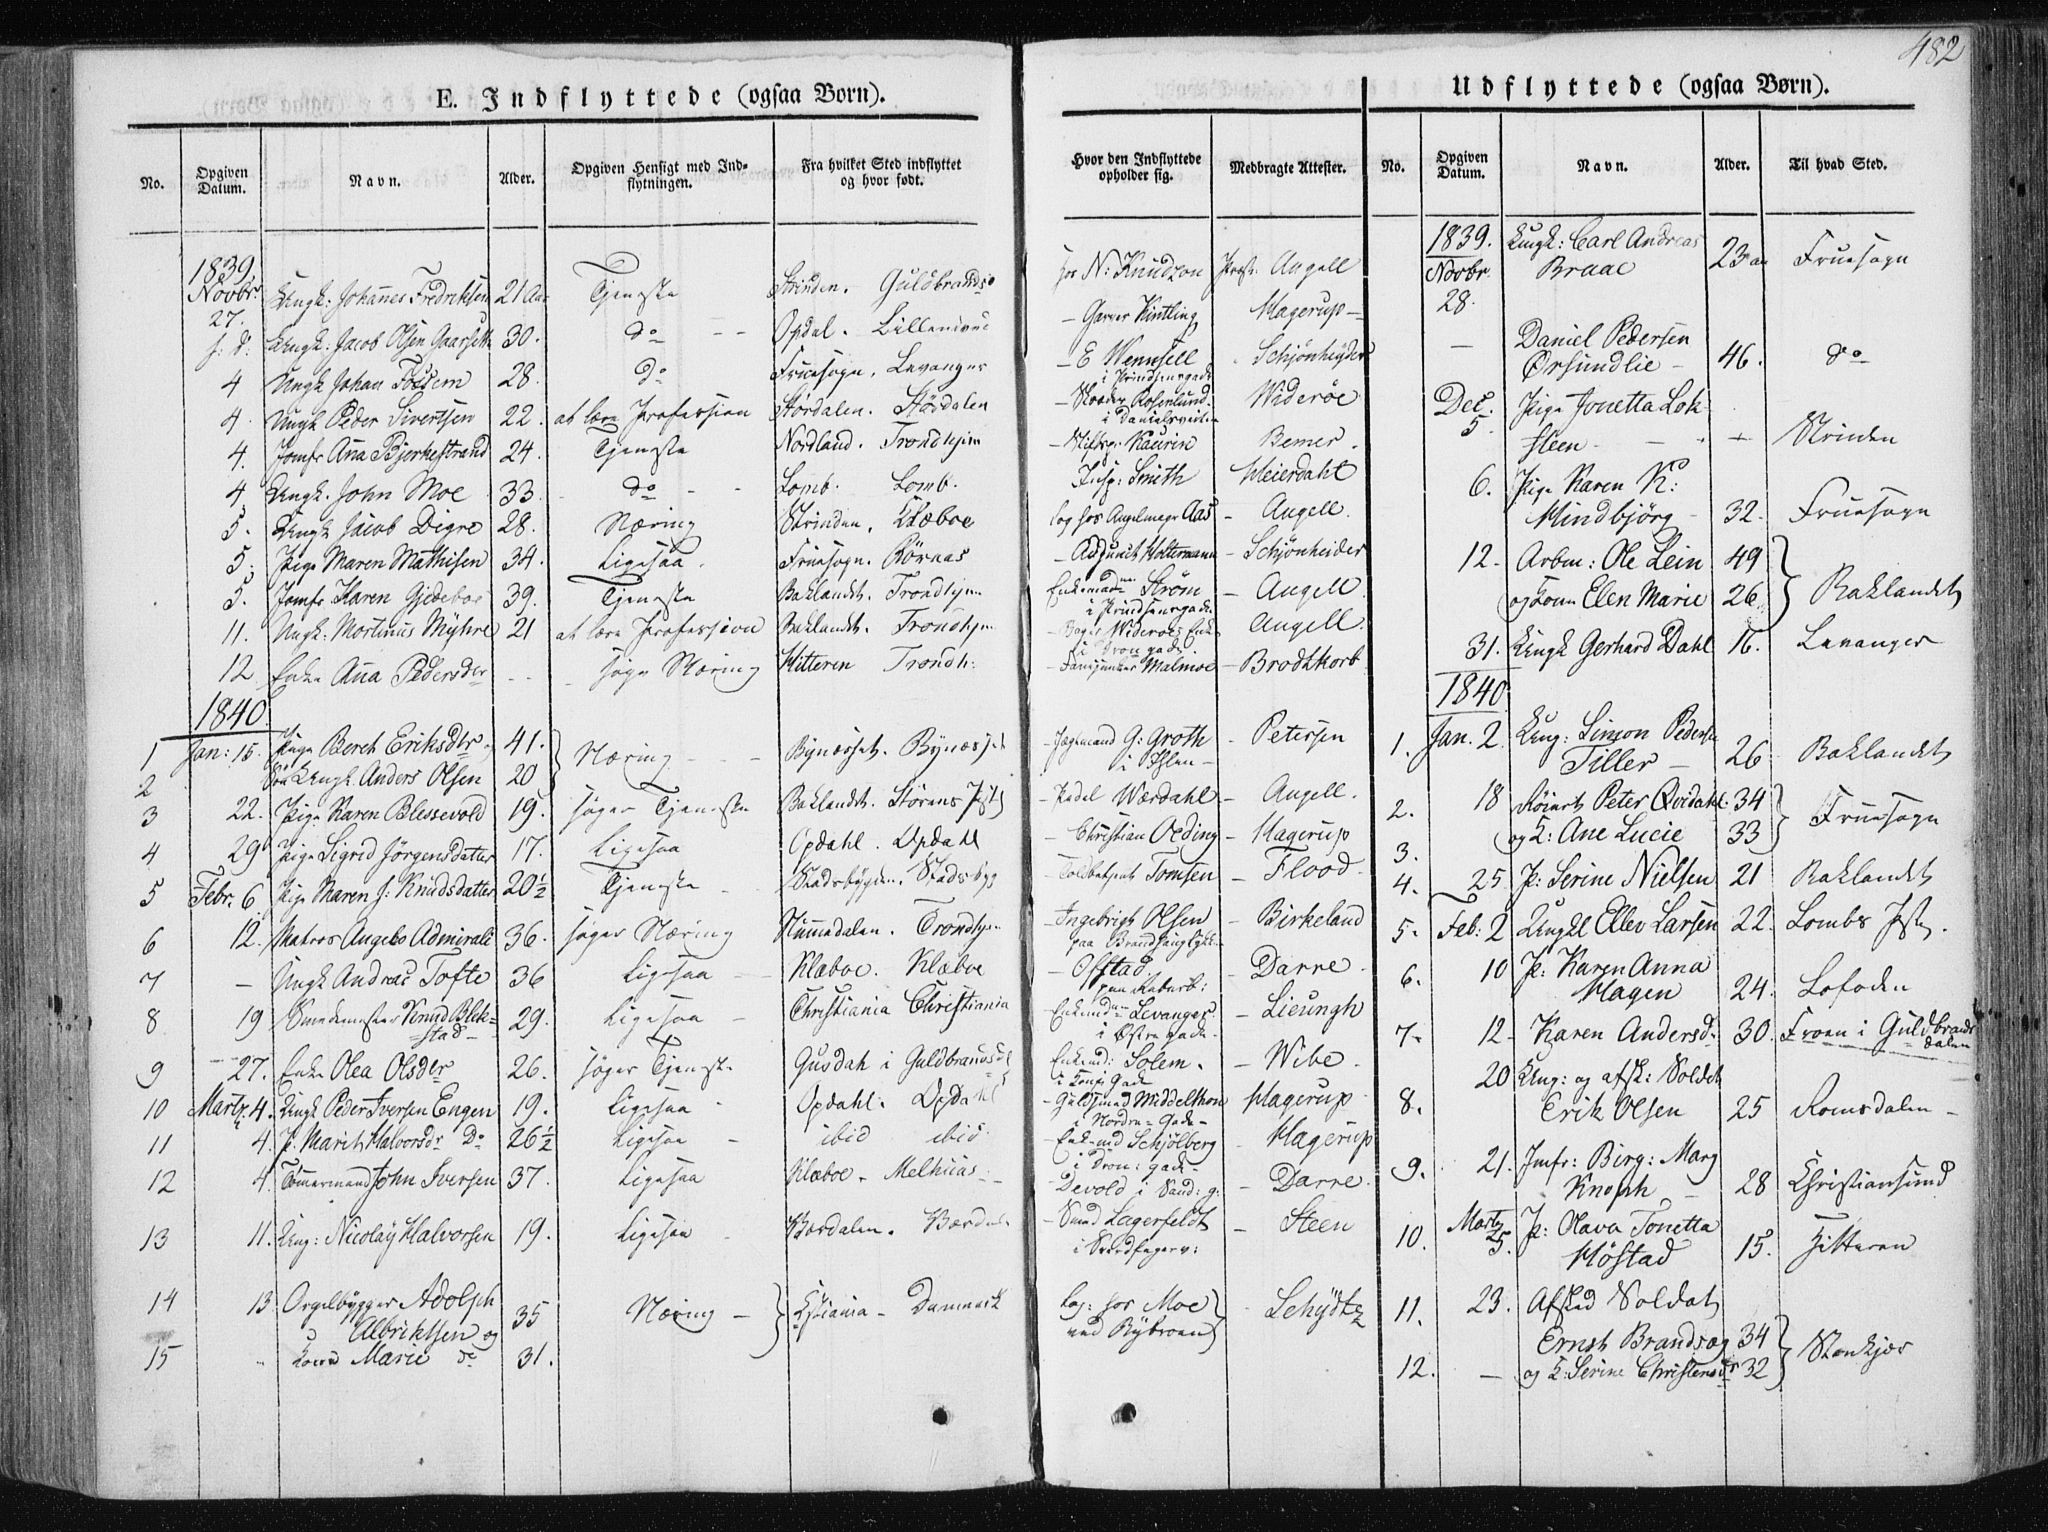 482
E. Indflyttede (ogsaa Børn).
Udflyttede (ogsaa Børn).
No. Opgiven Datum. Navn. Alder. Opgiven Hensigt med Indflytningen. Fra hvilket Sted indflyttet og hvor født. Hvor den Indflyttede opholder sig. Medbragte Attester.
1839.
Novbr. 27. Ungk: Johannes Fredriksen 21 Aar Tjeneste Strinden. Guldbrandsd. hos N: Knudzon Præst. Angell
s: d: Ungk: Jacob Olsen Gaarseth 30. do Opdal. Garver Kintling Hagerup
4 Ungk Johan Tossem 28. do Fruesogn. Levanger E Wennsell i Prindsensgade Schjønheyder
4. Ungk Peder Sivertsen 22. at lære Profession Størdalen. Størdalen Skræder Rosenlund i Danielsveiten Widerøe
4. Jomfr Ana Bjerkestrand 24. Tjeneste Nordland. Trondhjem Kaurin Bemer.
4. Ungk. John Moe 33. do Lomb. Lomb. Insp: Smith Meierdahl
5. Ungk Jacob Digre 28. Næring Strinden. Klæboe Log hos Angelmagr Aas Angell.
5. Pige Maren Mathisen 34. Ligesaa. Fruesogn. Rörnas Adjunct Holtermann Schjønheider
5. Jomfr Karen Gjedeboe 39. Tjeneste Baklandet. Trondhjem Enkemadme Strøm i Prindsensgade Angell.
11. Ungk: Mortinus Myhre 21 at lære Profession Baklandet. Trondhjem Bager Widerøes Enke i Dron gade. Angell.
12. Enke Ana Pedersdtr søge Næring Hitteren Trondh: Malmoe Brodtkorb
1840.
1 Jan: 15. Pige Beret Eriksdtr og 41. } Næring Bynæsset. Bynæsset Jægtmand G: Groth i Ihlen Petersen
2 Søn Ungk Anders Olsen 20
3 22. Pige Karen Blessevold 19. søger Tjeneste Baklandet. Størens Pstgj Pedel Wærdahl Angell.
4 29 Pige Sigrid Jörgensdatter 17. Ligesaa Opdahl. Opdahl Christian Oeding Hagerup
5 Febr. 6 Pige Maren J: Knudsdatter 20½ Tjeneste Stadsbygden. Stadsbyg Toldbetjent Tomsen Flood.
6 12. Matros Angelo Admirali 36. søger Næring Nummedalen. Trondhjem Ingebrigt Olsen paa Brandhaugløkken Birkeland
7 – Ungk Andreas Tofte 36 Ligesaa Klæboe. Klæboe Offstad paa Raburb: Darre.
8 19 Smedemester Knud Blekstad 29. Ligesaa Christiania Christiania Enkemdm Levanger i Østre gade. Lieungh
9 27. Enke Olea Olsdtr 26. søger Tjeneste Gusdah i Guldbrandsdl Enkemd: Solem. i Tomf Gade Wibe.
10 Martz. 4. Ungk Peder Iversen Engen 19. Ligesaa Opdahl. Opdahl Guldsmed Middelthon i Nordre Gade Hagerup
11 4. P. Marit Halvorsdr Do 26½ Ligesaa ibid ibid. Enkemd Schjölberg i Dron: gade. Hagerup
12 4. Tömmermand John Iversen 37. Ligesaa Klæboe. Melhuus Devold i Sand: g: Darre.
13 11. Ung: Nicolay Halvorsen 19. Ligesaa Værdalen. Værdal. Smed Lagerfeldt i Sværdfegerv: Steen
14 13 Orgelbygger Adolph Albriktsen og 35 } Næring Xstiania. Danmark Log: hos Moe ved Bybroen Schydtz
15 " Kone Marie do 31.
No. Opgiven Datum. Navn. Alder. Til hvad Sted.
1839. Novbr. 28. Ungk: Carl Andreas Braae 23 aar Fruesogn
– Daniel Pedersen Ørsundlie 46. do
Dec. 5 Pige Jonetta Loksteen Strinden
6. Pige Karen K: Mindbjörg 32. Fruesogn
12. Arbm: Ole Lein 49 } Baklandet
og Kone Elen Marie 26.
31. Ungk Gerhard Dahl 16. Levanger
1840.
1. Jan. 2. Ung: Simon Pedersen Tiller 26. Baklandet
2. 18 Peter Qvidahl 34 } Fruesogn
3. og K: Ane Lucie 33
4. 25 P: Serine Nielsen 21 Baklandet
5. Feb: 2 Ungkl Ellev Larsen 22. Lombs Pstgj.
6. 10 P: Karen Anna Hagen 24. Lofoden
7. 12. Karen Andersd: 30. Froen i Guldbrandsdalen
8. 20 Ung: og afsk: Soldat Erik Olsen 25 Romsdalen
9. 21. Jmfr: Birg: Marg Knoph 28 Christiansund
10. Martz 5. P: Olava Tonetta Höstad 15. Hitteren
11. 23. Afsked Soldat Ernst Brandsaas 34 } Stenkjær
12. – og K: Serine Christensdr 32